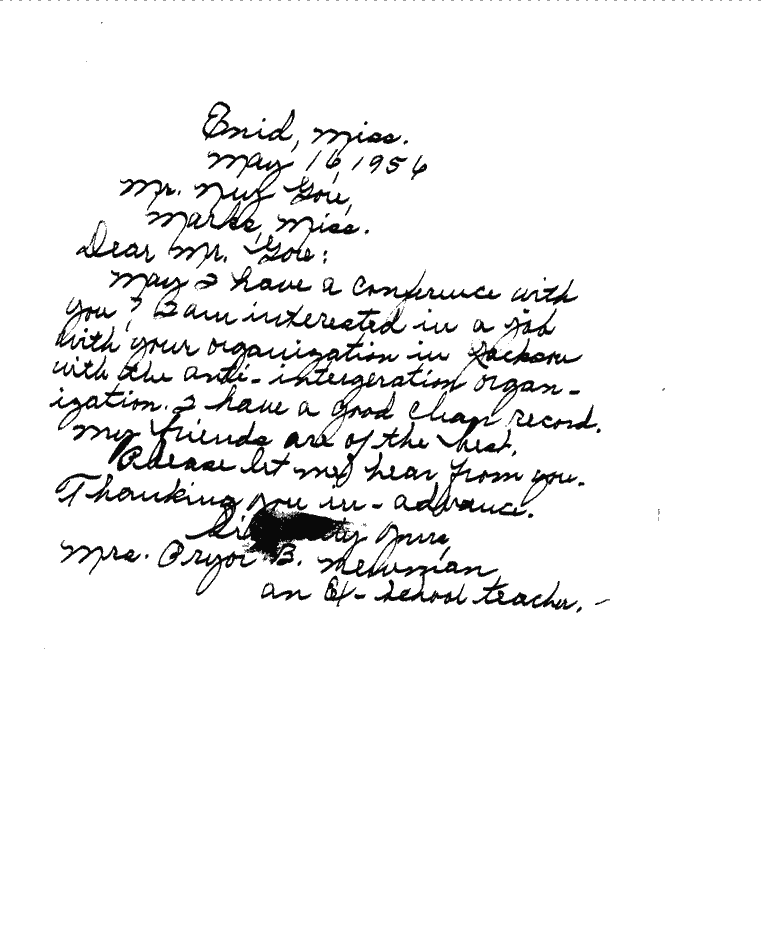 Enid, Miss.
May 16, 1956
Mr. Ney Gore,
Marks, Miss.
Dear Mr. Gore:
May I have a conference with
you? I am interested in a job
with your organization in Jackson
with the anti-intergeration organ-
ization. I have a good clean record.
My friends are of the best.
Please let me hear from you.
Thanking you in-advance.
yours,
Mrs. Pryor B. Newman
an Ex-School teacher.-